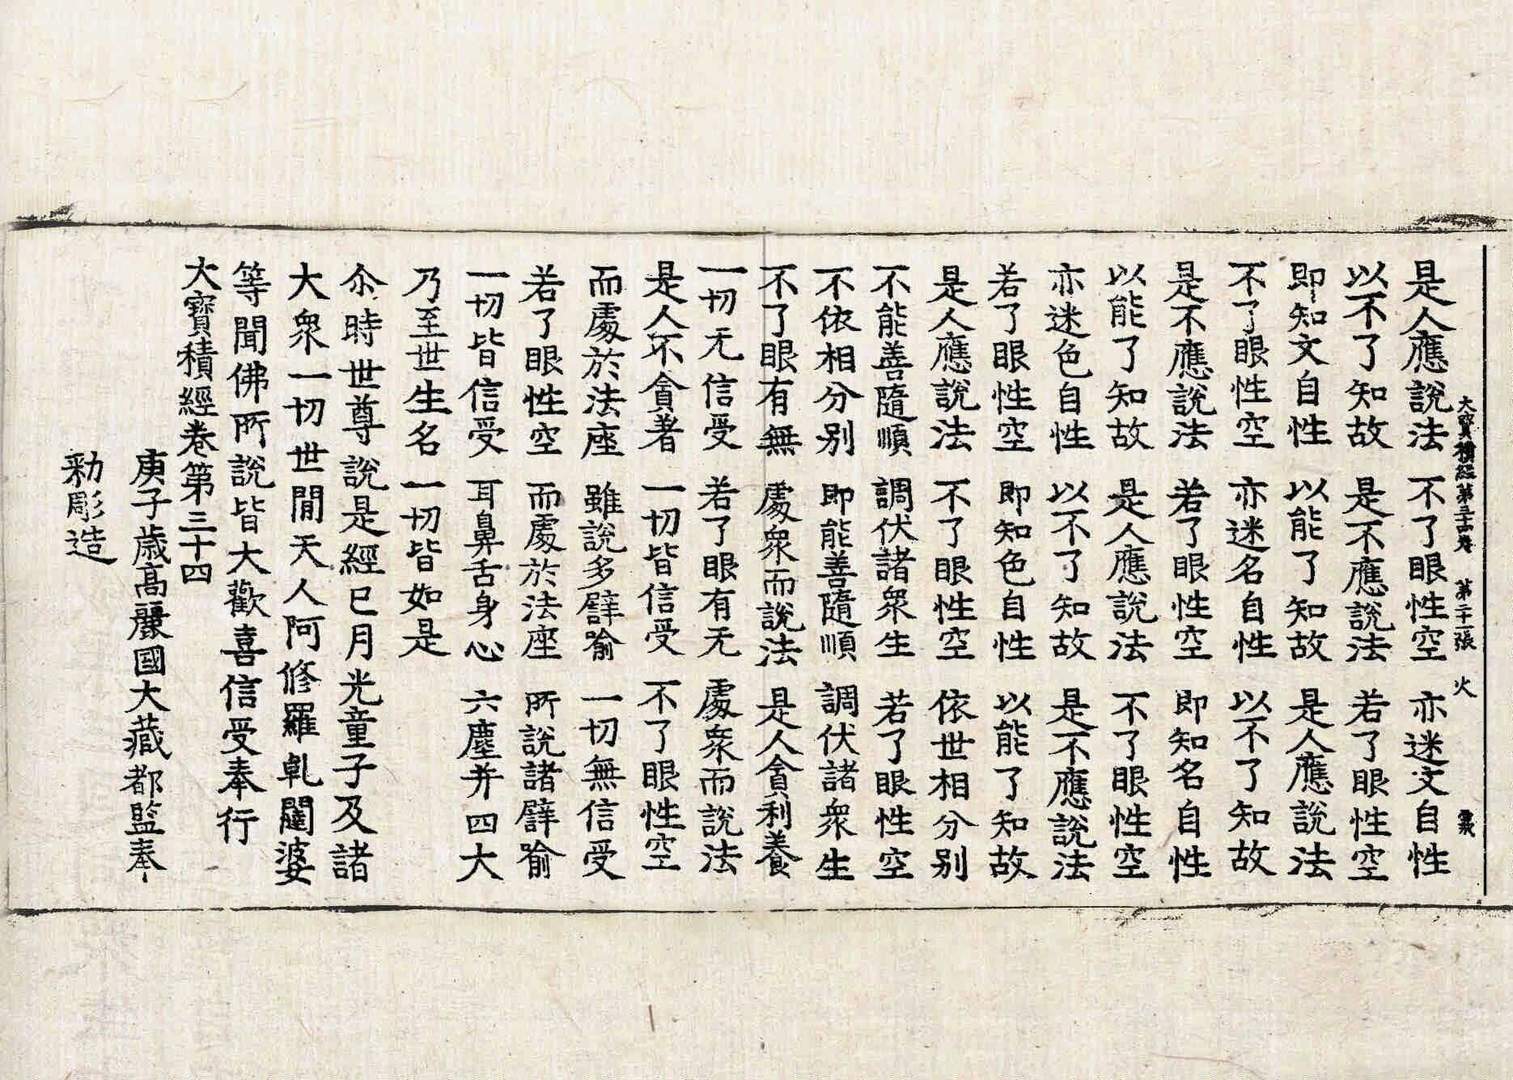 大寶積經第三十四卷　第二十一張　火
是人應說法　不了眼性空　亦迷文自性
以不了知故　是不應說法　若了眼性空
即知文自性　以能了知故　是人應說法
不了眼性空　亦迷名自性　以不了知故
是不應說法　若了眼性空　即知名自性
以能了知故　是人應說法　不了眼性空
亦迷色自性　以不了知故　是不應說法
若了眼性空　即知色自性　以能了知故
是人應說法　不了眼性空　依世相分別
不能善隨順　調伏諸衆生　若了眼性空
不依相分別　即能善隨順　調伏諸衆生
不了眼有無　處衆而說法　是人貪利養
一切无信受　若了眼有无　處衆而說法
是人不貪著　一切皆信受　不了眼性空
而處於法座　雖說多譬喻　一切無信受
若了眼性空　而處於法座　所說諸譬喻
一切皆信受　耳鼻舌身心　六塵并四大
乃至世生名　一切皆如是
尒時世尊說是經已月光童子及諸
大衆一切世閒天人阿修羅乹闥婆
等聞佛所說皆大歡喜信受奉行
大寶積經卷第三十四
庚子歲高麗國大藏都監奉
勑彫造